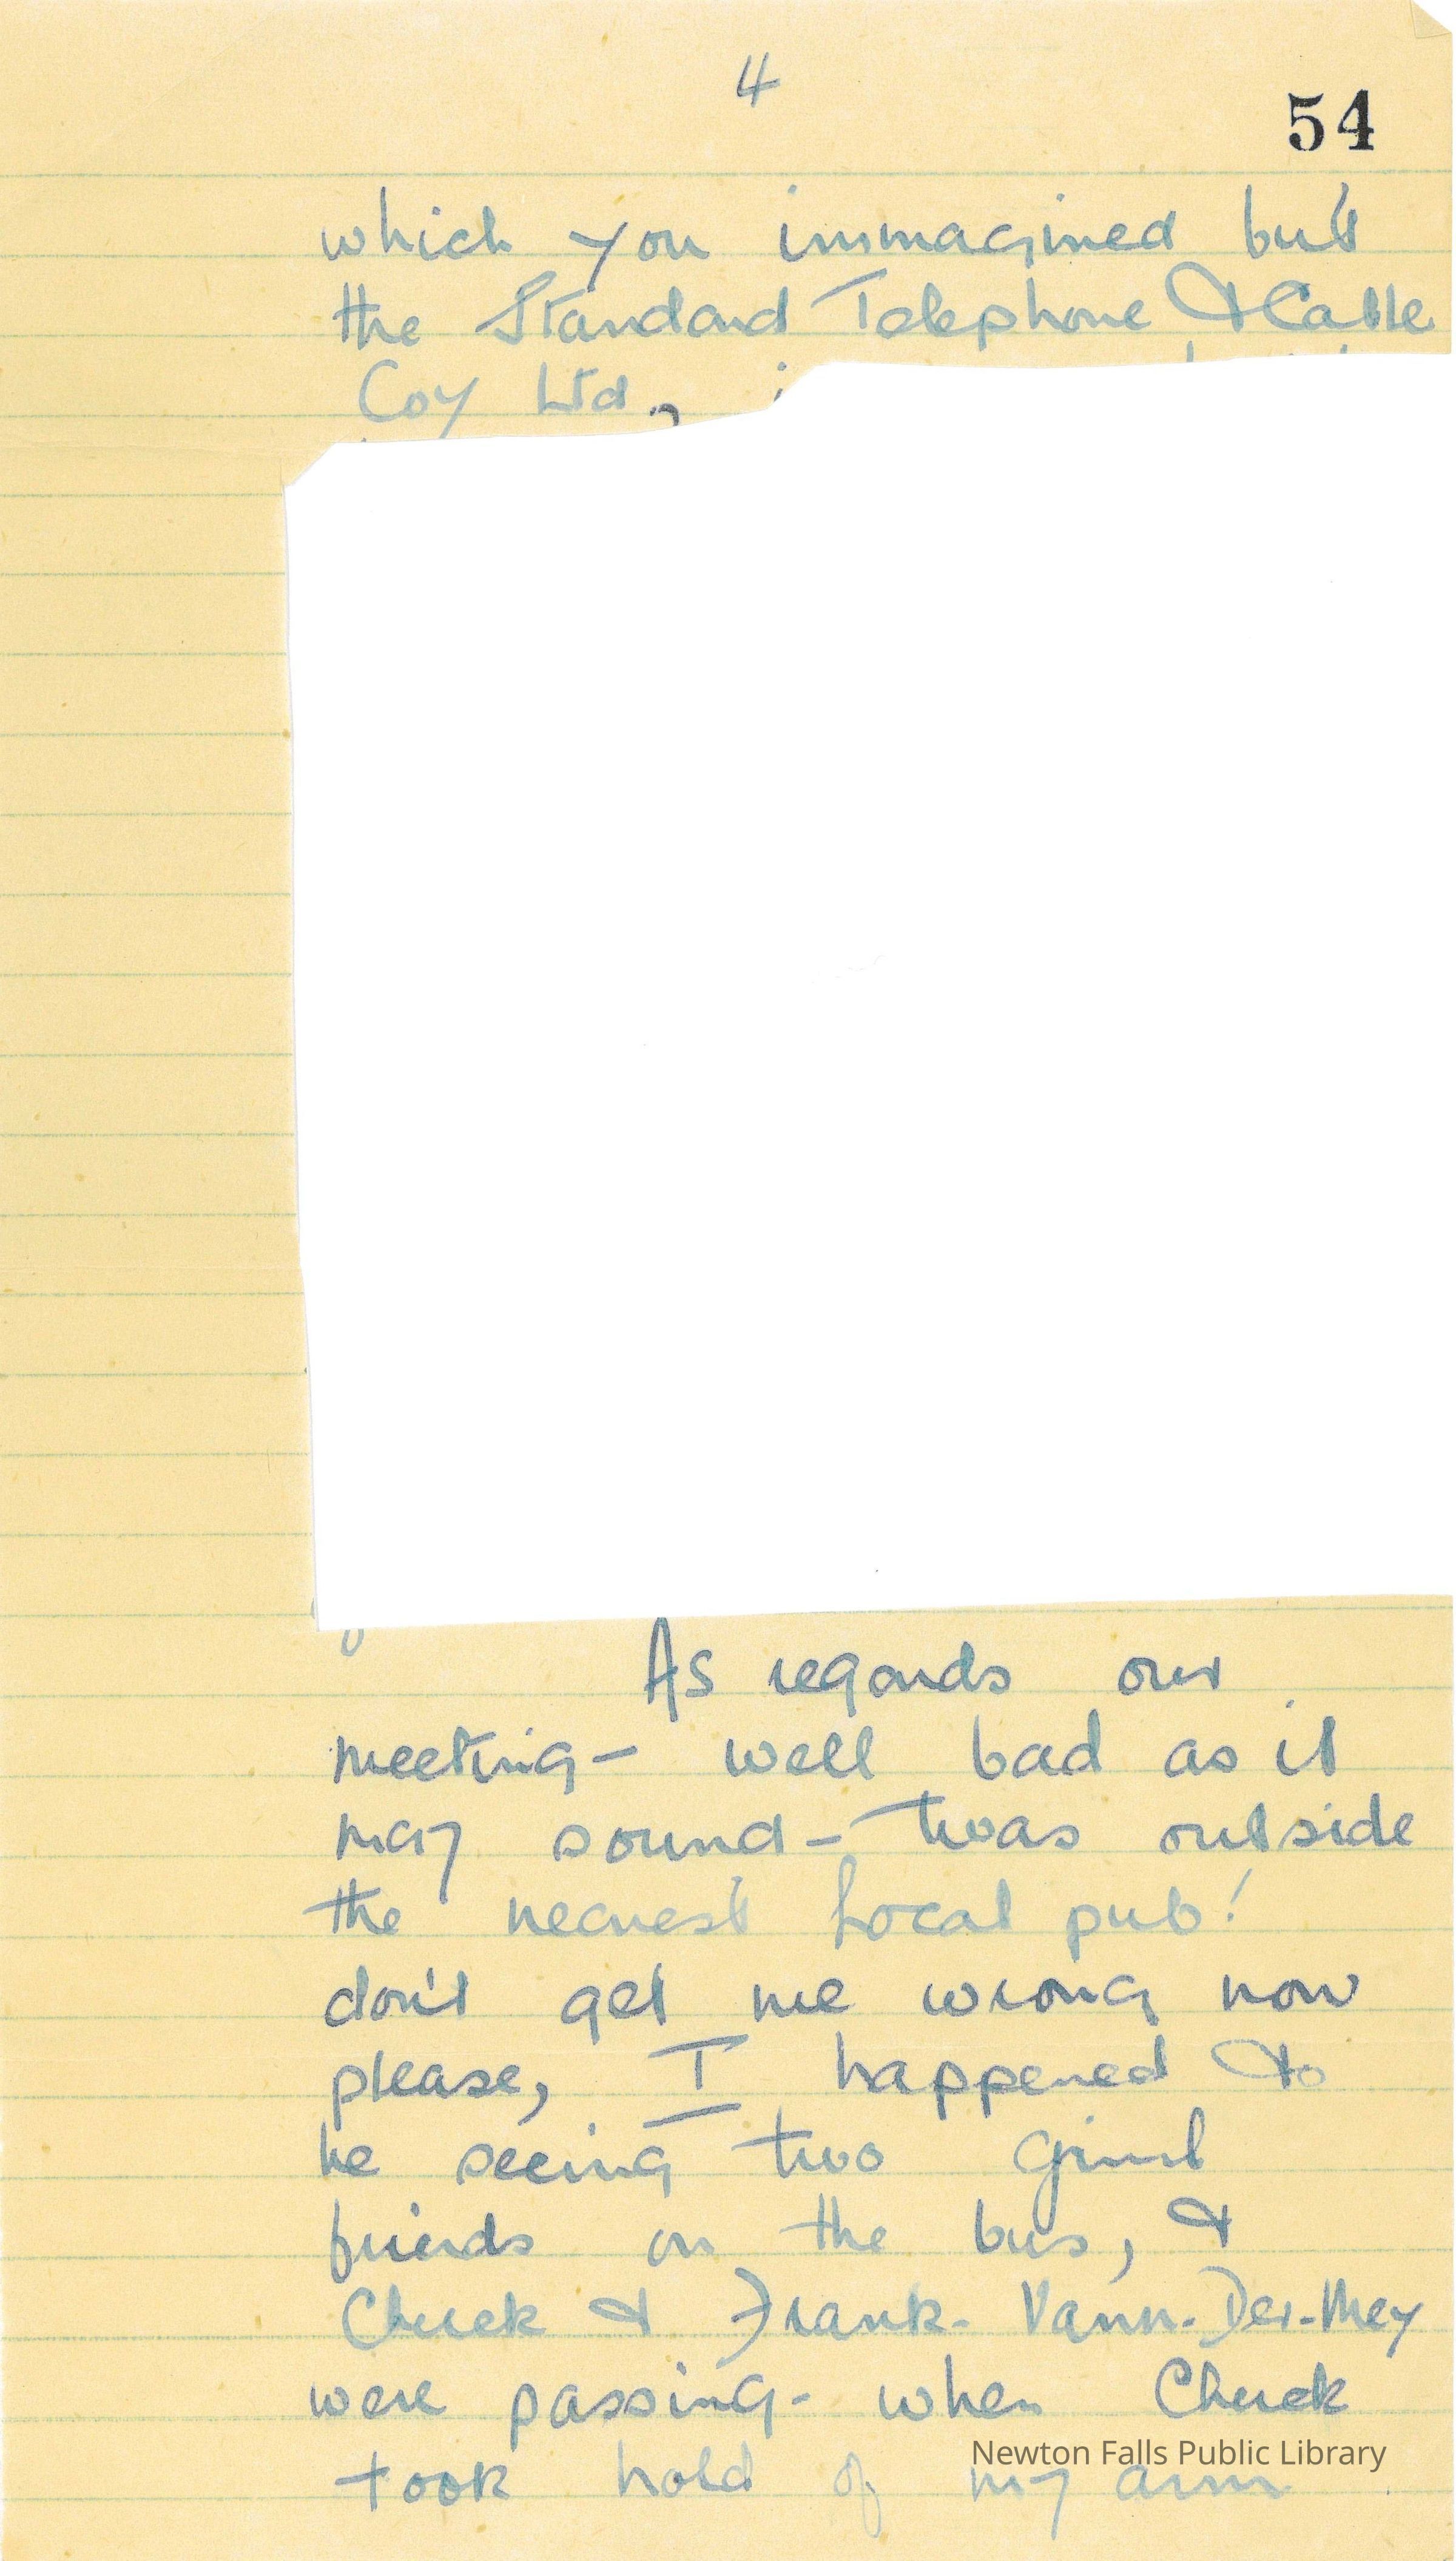 4
54
which you immagined but
the Standard Telephone & Cable
Coy Ltd,
As regards our
meeting - well bad as it
may sound - twas outside
the nearest local pub!
don't get me wrong now
please, I happened to
be seeing two
friends on the bus, &
Chuck & Frank - Vann-Der-Mey
were passing - when Chuck
took hold of my arm
Newton Falls Public Library